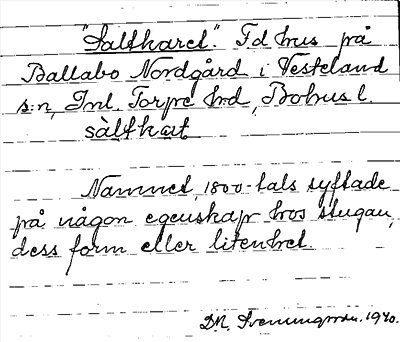 "Saltkaret". Fd hus på
Ballabo Nordgård i Västerlanda
s:n, Inl. Torpe hrd, Bohus l.
sàltkat
Namnet, 1800-tals syftade
på någon egenskap hos stugan,
dess form eller litenhet.
D.N. Svenungsson. 1940.